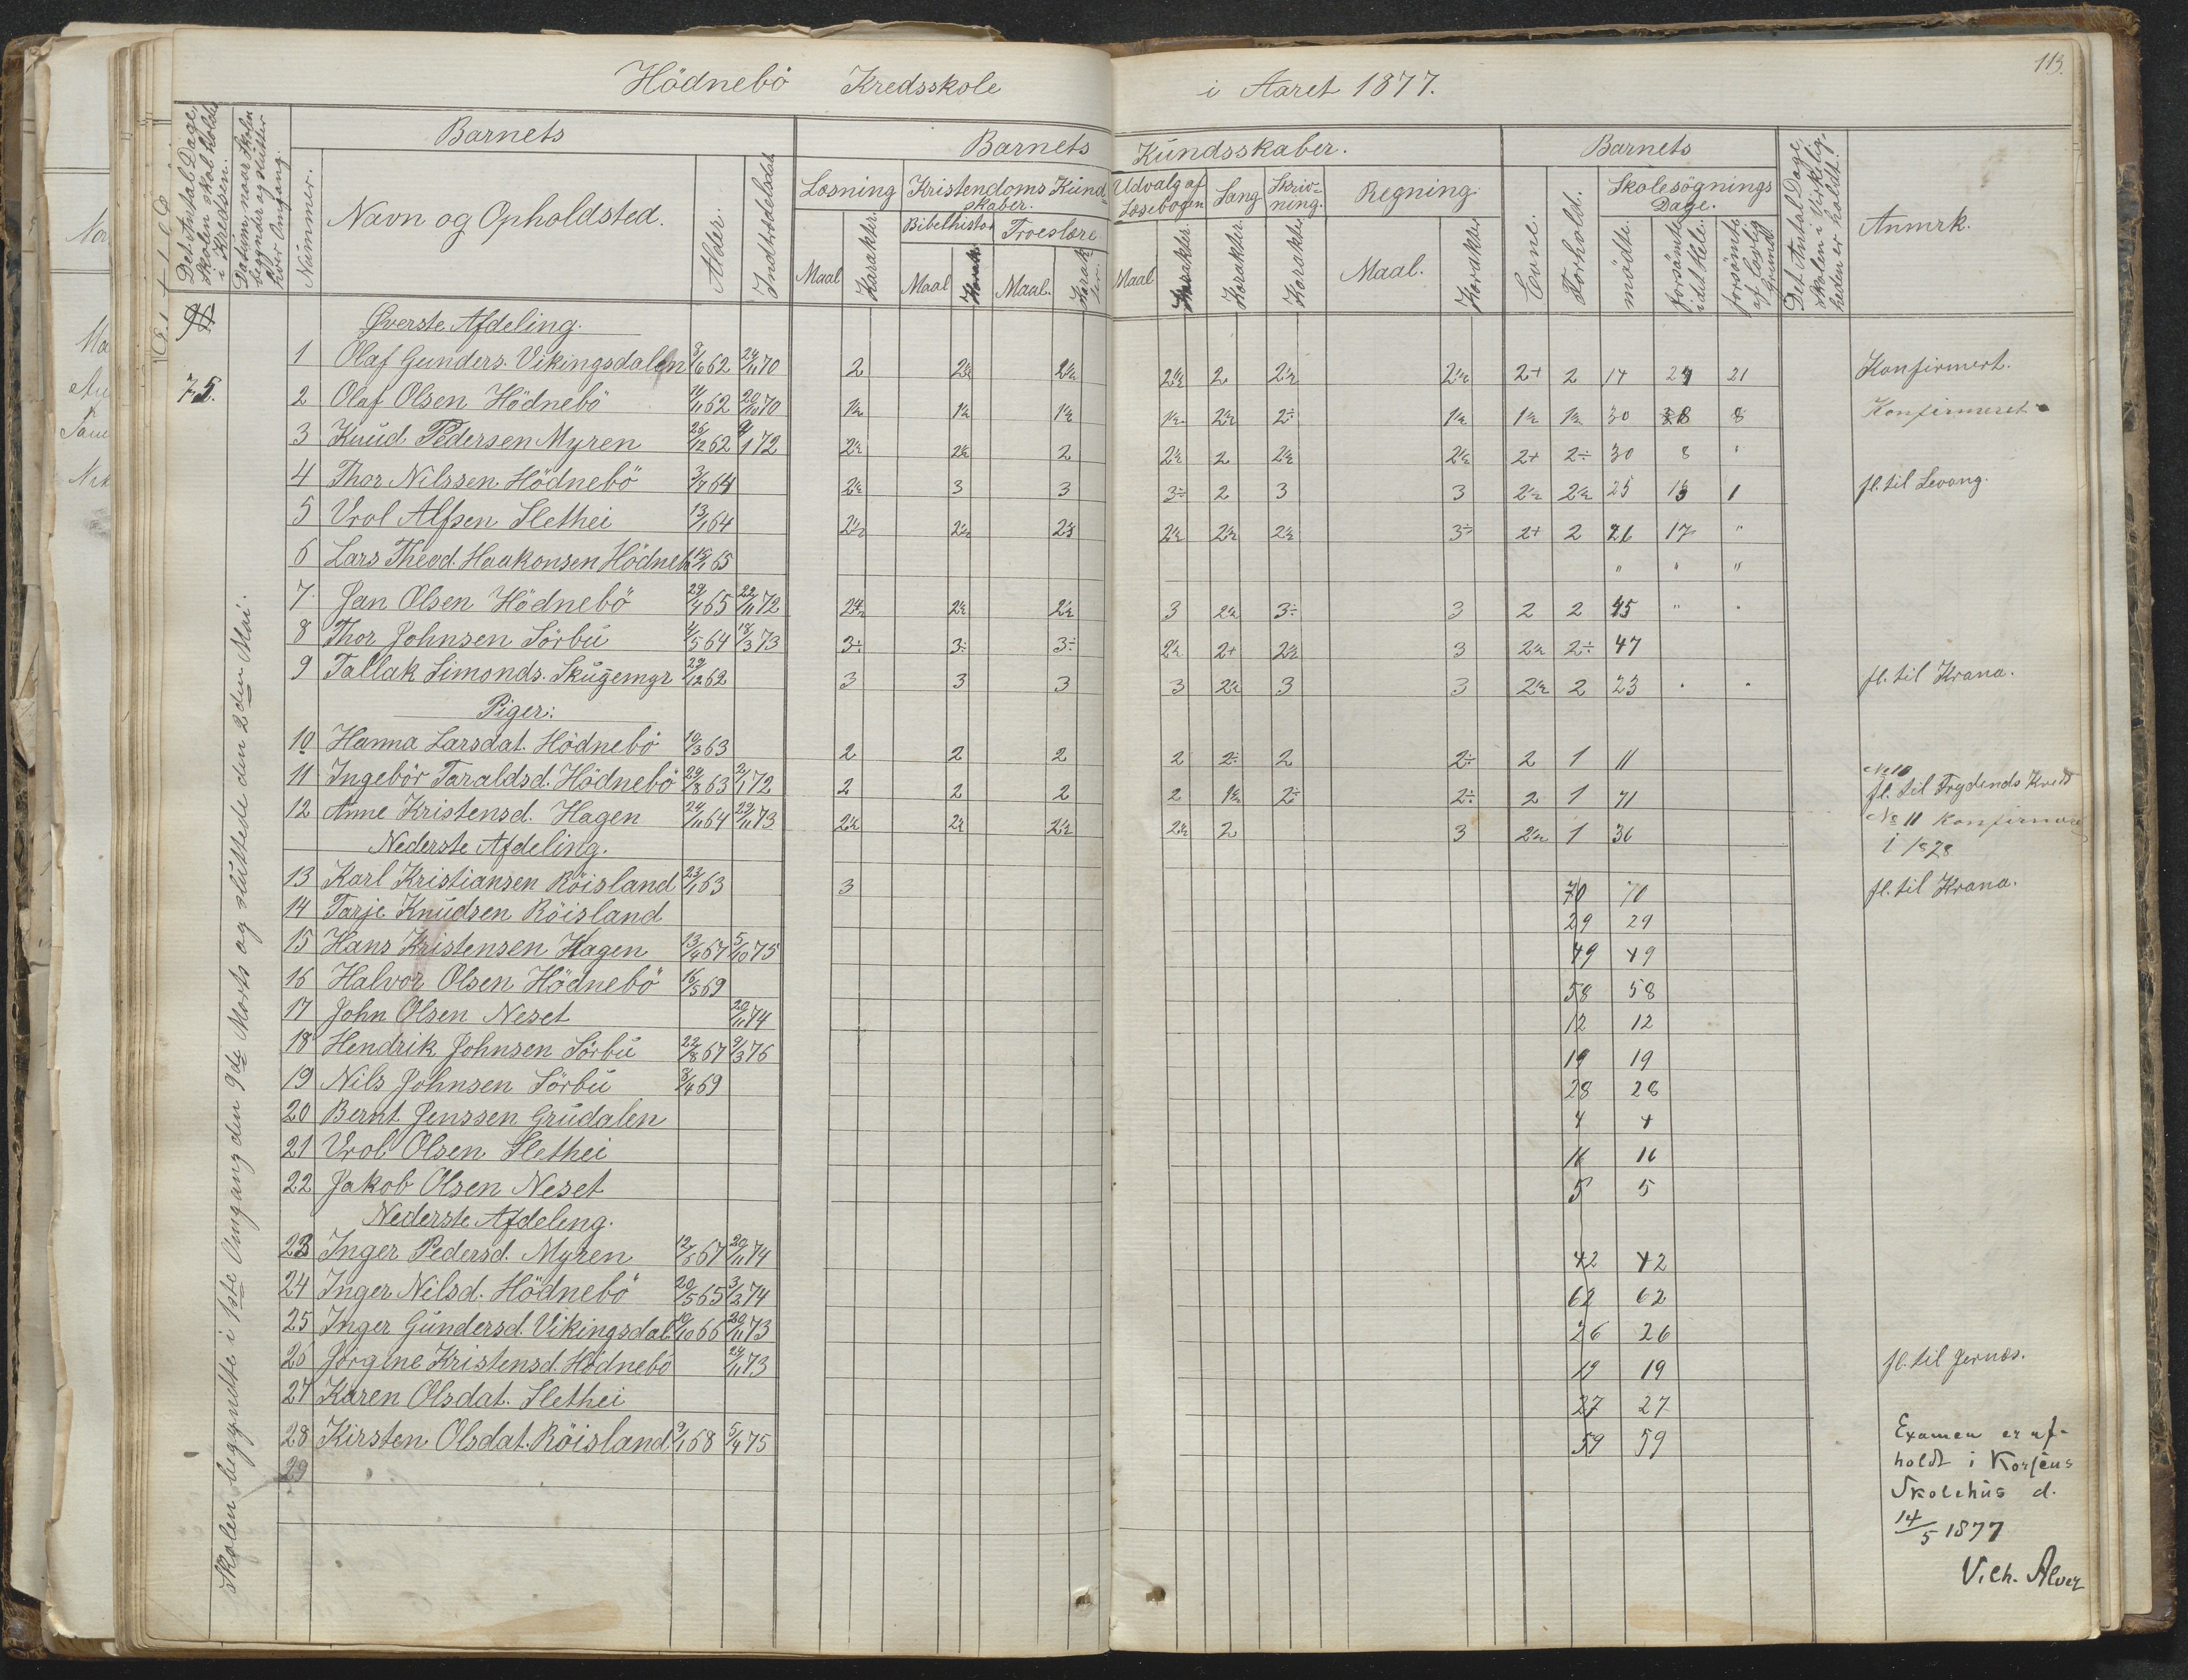 113.
Hödnebö Kredsskole i Aaret 1877.
Det Antal Dage, Skolen skal holdes i Kredsen.
Datum, naar Skolen begynder og slutter hver Omgang.
Barnets
Nummer.
Navn og Opholdsted.
Alder.
Indtrædelsdat
Barnets Kundsskaber.
Læsning
Maal Karakter.
Kristendoms Kundskaber.
Bibelhistor Troeslære
Maal Karak Maal. Karakter
Udvalg af Læsebogen
Maal Karakter.
Sang
Karakter.
Skrivning.
Karakter
Regning.
Maal. Karakter
Barnets
Evne.
Forhold.
Skolesögnings Dage.
mödte.
forsömte i det Hele.
forsömte af lovlig Grund
Det Antal Dage, Skolen i Virkeligheden er holdt.
Anmrk.
75.
Skolen begyndte i 1ste Omgang den 9de Marts og sluttede den 2den Mai.
Øverste Afdeling.
1 Olaf Gunders. Vikingsdalen 3/6 62 24/11 70 2 2½ 2½ 2½ 2 2½ 2½ 2+ 2 14 24 21 Konfirmert.
2 Olaf Olsen Hödnebö 11/11 62 20/10 70 1½ 1½ 1½ 1½ 2½ 2÷ 1½ 1½ 1½ 30 8 8 Konfirmeret
3 Knud Pedersen Myren 26/12 62 9/1 72 2½ 2½ 2 2½ 2 2½ 2½ 2+ 2÷ 30 8 "
4 Thor Nilssen Hödnebö 3/7 64 2½ 3 3 3÷ 2 3 3 2½ 2½ 25 13 1 fl. til Levang.
5 Vrol Alfsen Slethei 13/1 64 2½ 2½ 2½ 2½ 2½ 2½ 3÷ 2+ 2 26 17 "
6 Lars Theod. Haakonsen Hödneb 65 " " "
7. Jan Olsen Hödnebö 29/4 65 22/11 72 2½ 2½ 2½ 3 2½ 3÷ 3 2 2 45 " "
8 Thor Johnsen Sörbu 4/5 64 18/3 73 3÷ 3÷ 3÷ 2½ 2+ 2½ 3 2½ 2÷ 47
9 Tallak Simonds. Skugemyr 29/12 62 3 3 3 3 2½ 3 3 2½ 2 23 " " fl. til Krana.
Piger:
10 Hanna Larsdat. Hödnebö 10/3 63 2 2 2 2 2÷ 2 2÷ 2 1 11
No 10 fl. til Frydends Kreds
11 Ingebör Taraldsd. Hödnebö 29/8 63 2/1 72 2 2 2 2 1½ 2÷ 2÷ 2 1 71
No 11 Konfirmere
12 Anne Kristensd. Hagen 24/11 64 29/11 73 2½ 2½ 2½ 2½ 2 3 2½ 1 36
i 1828
Nederste Afdeling.
13 Karl Kristiansen Röisland 23/1 63 3 70 70 fl. til Krana.
14 Tarje Knudsen Röisland 29 29
15 Hans Kristensen Hagen 13/4 67 5/10 75 49 49
16 Halvor Olsen Hödnebö 16/5 69 58 58
17 John Olsen Neset 20/11 74 12 12
18 Hendrik Johnsen Sörbu 22/8 67 9/3 76 19 19
19 Nils Johnsen Sörbu 8/4 69 28 28
20 Bernt Jenssen Grudalen 4 4
21 Vrol Olsen Slethei 16 16
22 Jakob Olsen Neset 5 5
Nederste Afdeling.
23 Inger Pedersd. Myren 12/5 67 20/11 74 42 42
24 Inger Nilsd. Hödnebö 20/5 65 3/2 74 62 62
25 Inger Gundersd. Vikingsdal. 10/10 66 20/11 73 26 26
26 Jörgine Kristensd. Hödnebö 24/11 73 19 19 fl. til Jernæs.
27 Karen Olsdat. Slethei 27 27
28 Kirsten Olsdat. Röisland. 9/1 68 5/4 75 59 59
29
Examen er afholdt i Korsens
Skolehus d.
14/5 1877
V. Ch. Alver